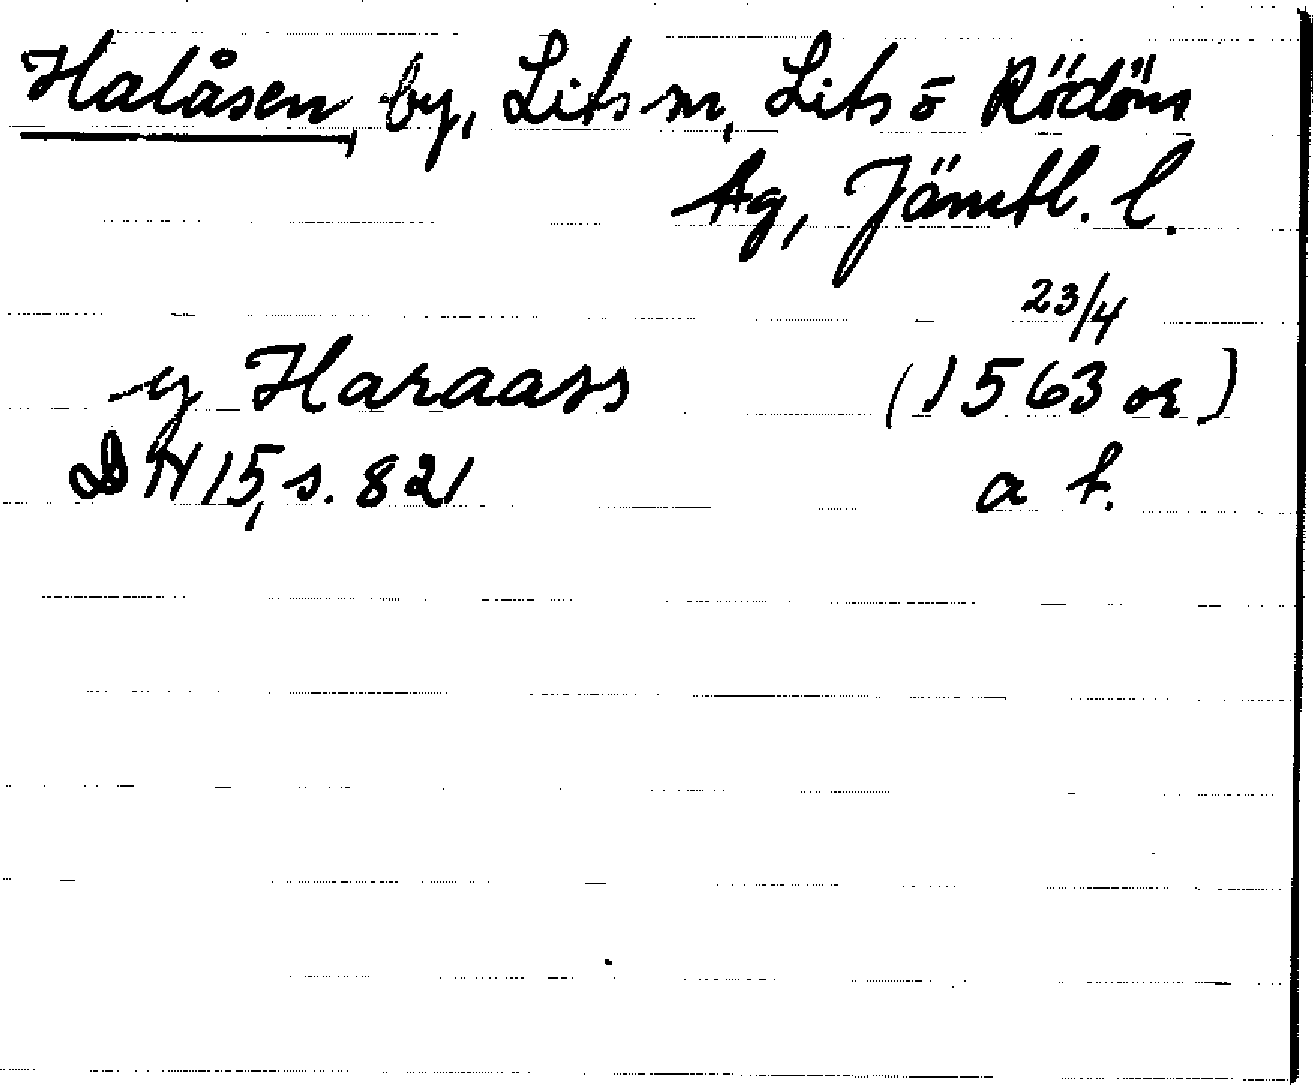 Halåsen by, Lits sn, Lits o Rödöns
tg, Jämtl. l.
23/4
y Haraass (1563 or)
DN 15, s. 821 a t.